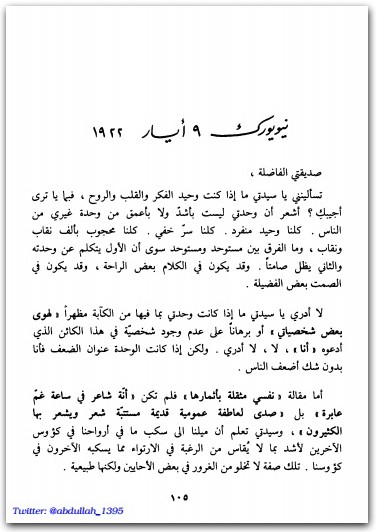 نيويورك ٩ أيـار ١٩٢٢
صديقتي الفاضلة ،
تسألينني يا سيدتي ما إذا كنت وحيد الفكر والقلب والروح ، فبما يا ترى
أجيبكِ ؟ أشعر أن وحدتي ليست بأشدّ ولا بأعمق من وحدة غيري من
الناس . كلنا وحيد منفرد . كلنا سرّ خفي . كلنا محجوب بألف نقاب
ونقاب ، وما الفرق بين مستوحد ومستوحد سوى أن الأول يتكلم عن وحدته
والثاني يظل صامتاً . وقد يكون في الكلام بعض الراحة ، وقد يكون في
الصمت بعض الفضيلة .
لا أدري يا سيدتي ما إذا كانت وحدتي بما فيها من الكآبة مظهراً «لهوى
بعض شخصياتي» أو برهاناً على عدم وجود شخصيّة في هذا الكائن الذي
أدعوه «أنا» ، لا ، لا أدري . ولكن إذا كانت الوحدة عنوان الضعف فأنا
بدون شك أضعف الناس .
أما مقالة «نفسي مثقلة بأثمارها» فلم تكن «أنّة شاعر في ساعة غمّ
عابرة» بل «صدى لعاطفة عمومية قديمة مستتبّة شعر ويشعر بها
الكثيرون» ، وسيدتي تعلم أن ميلنا الى سكب ما في أرواحنا في كؤوس
الآخرين لأشد بما لا يُقاس من الرغبة في الارتواء مما يسكبه الآخرون في
كؤوسنا . تلك صفة لا تخلو من الغرور في بعض الأحايين ولكنها طبيعية .
١٠٥
Twitter: @abdullah_1395